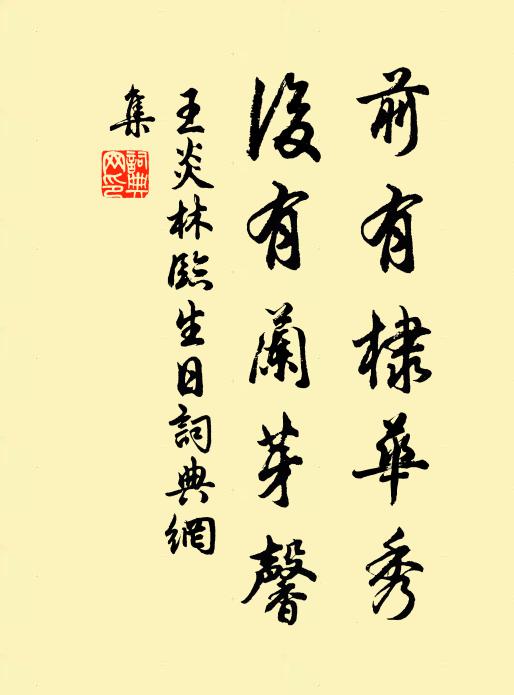 前有棣華秀
後有蘭芽馨
王炎林臨生日詞典網
集
詞典
网印